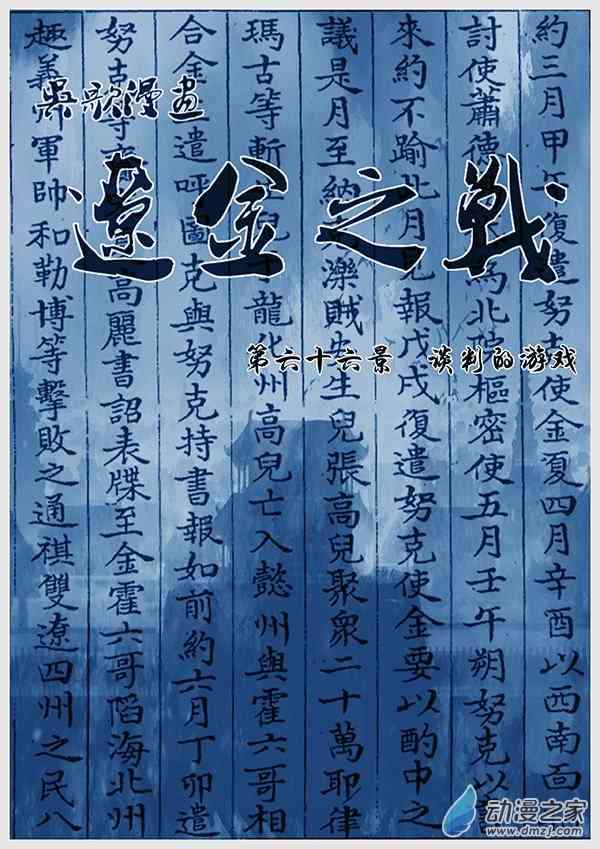 吳歌漫画
遼金之戰
第六十六景 谈判的游戏
約三月甲午復遣努使金夏四月辛酉以西南面
討使蕭德為北樞密使五月壬午朔努克以
來約不踰此月見報戊戌復遣努克使金要以酌中之
議是月至納濼賊安生兒張高兒聚衆二十萬耶律
瑪古等斬生兒于龍化州高兒亡入懿州與霍六哥相
合金遣呼圖克與努克持書報如前約六月丁卯遣
努克等高麗書詔表牒至金霍六哥陷海北州
趣義州軍帥和勒博等擊敗之通祺雙遼四州之民八
动漫之家
www.dmzj.com